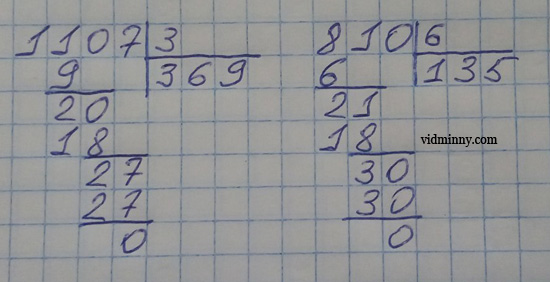 1107 3
9 369
20
18
27
27
0
810 6
6 135
21
18
30
30
0
vidminny.com